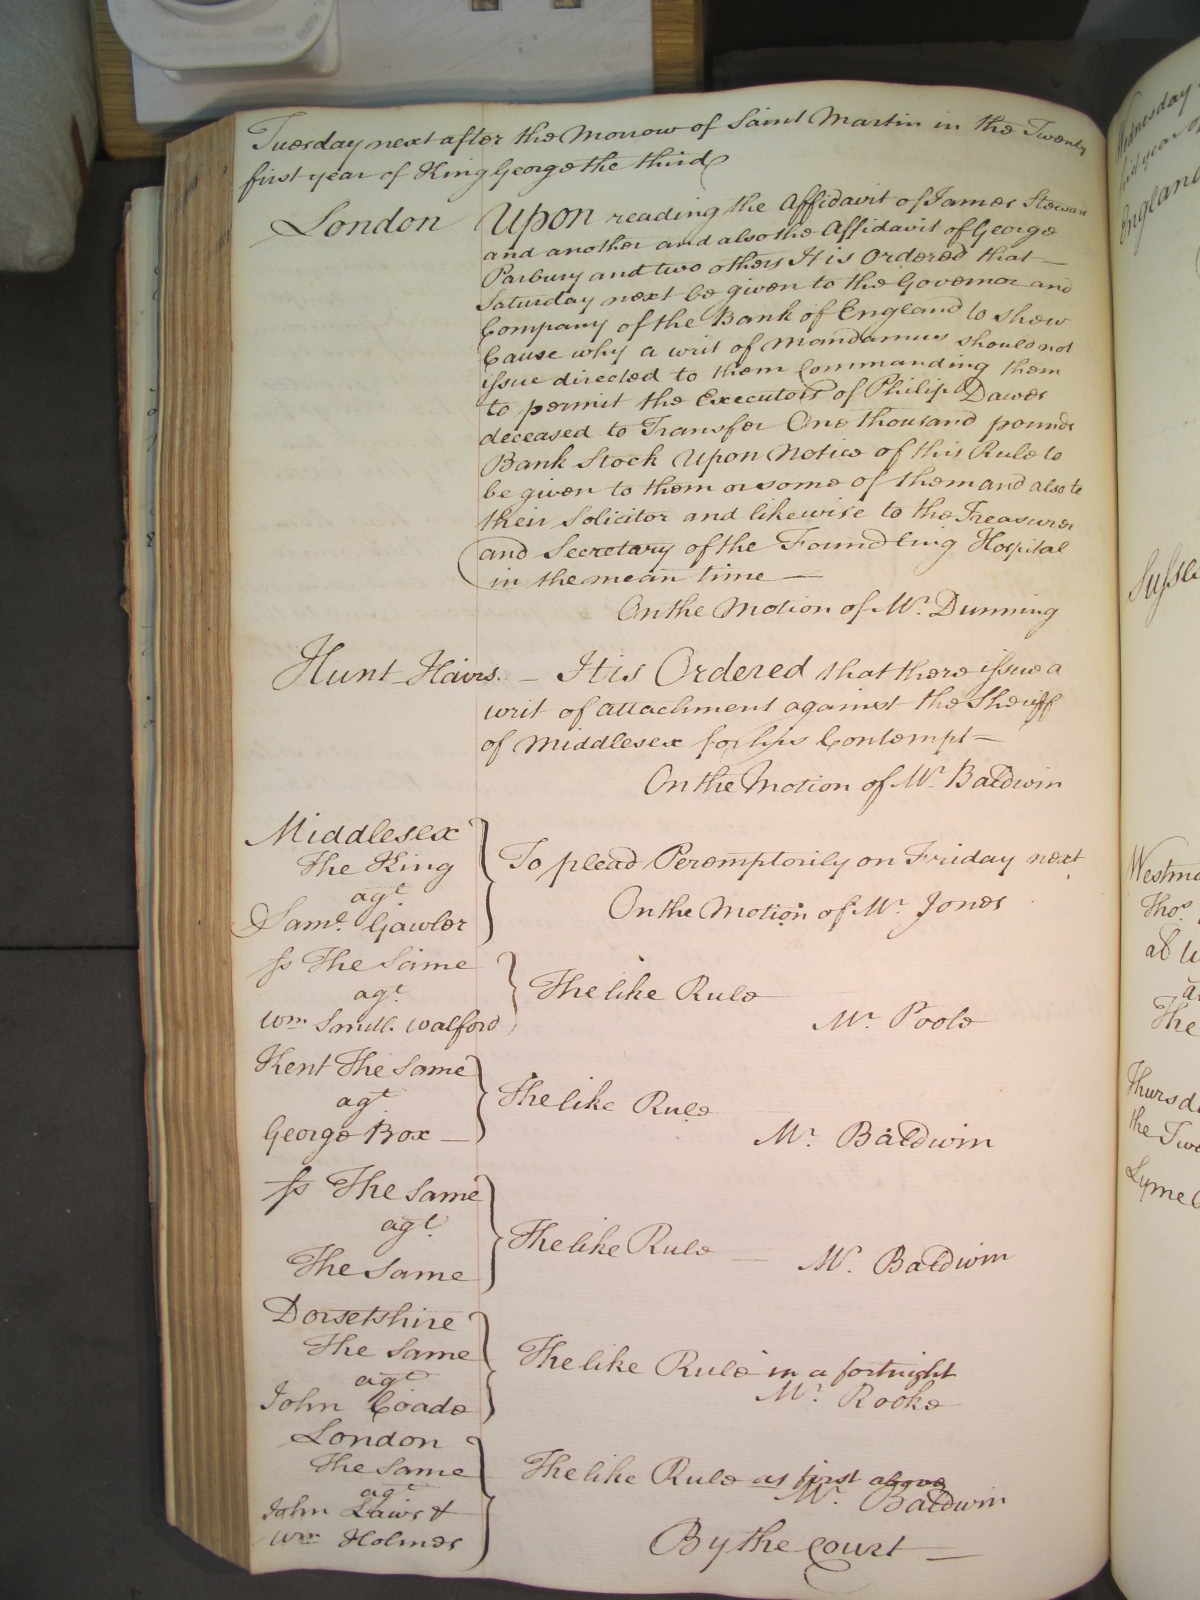 Tuesday next after the Morrow of Saint Martin in the Twenty
first year of King George the third
London Upon reading the Affidavit of James Steward
and another and also the Affidavit of George
Parbury and two others It is Ordered that
Saturday next be given to the Governor and
Company of the Bank of England to shew
Cause why a writ of Mandamus should not
issue directed to them Commanding them
to permit the Executors of Philip Dawes
deceased to Transfer One thousand pounds
Bank Stock Upon Notice of this Rule to
be given to them or some of them and also to
their Solicitor and likewise to the Treasurer
and Secretary of the Foundling Hospital
in the mean time
On the Motion of Mr. Dunning
Hunt Hairs. It is Ordered that there issue a
writ of attachment against the Sheriff
of Middlesex for his Contempt
On the Motion of Mr. Baldwin
Middlesex
The King
agt.
Saml. Gawler
To plead Peremptorily on Friday next
On the Motion of Mr. Jones
Ss The Same
agt.
Wm Smith Walford
The like Rule
Mr. Poole
Kent The Same
agt
George Box
The like Rule
Mr. Baldwin
Ss The Same
agt.
The Same
The like Rule
Mr. Baldwin
Dorsetshire
The Same
agt
John Coade
The like Rule in a fortnight
Mr. Rooke
London
The Same
agt
John Laws &
Wm Holmes
The like Rule as first above
Mr. Baldwin
By the Court
Wednesday
England
Thos.
The
Thursd
the Twe